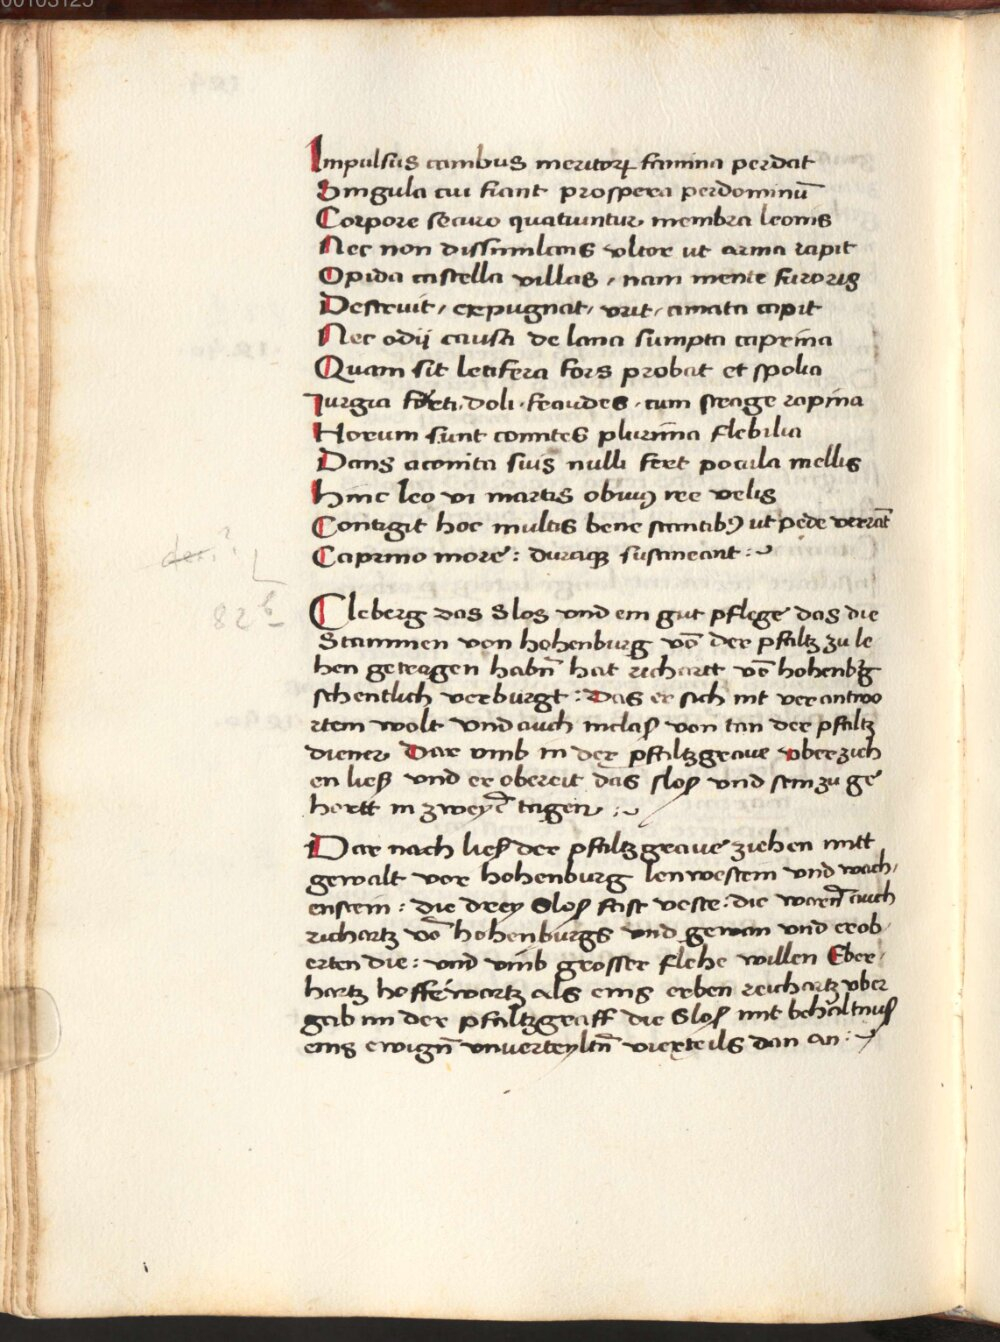 00103125
Impulsus cambus meritorꝝ famina perdat
Singula cui fiant prospera perdominū
Corpore securo quatuuntur, membra leonis
Nec non dissimilans ultor ut arma rapit
Opida castella villas, nam mente furoris
Destruit, expugnat, vrit, amata capit
Nec odij causa de lana sumpta caprina
Quam sit letifera fors probat et spolia
Iurgia furti, doli, fraudes, cum strage rapina
Horum sunt comites plurima flebilia
Dans aconita suis nulli fert pocula mellis
Hinc leo vi martis obuiꝰ ree velis
Contigit hoc multis bene stantibꝰ ut pede verrāt
Caprino more : duraqꝫ sustineant :~
Cleberg das Slos vnd ein gut pflege das die
Stammen von hohenburg vō der pfaltz zu le
hen getragen habn̄ hat richartt vō hohenbʒg
schentlich verburgt : Das er sich nit verantwo
rten wolt vnd auch niclaß von tan der pfaltz
diener, Dar vmb in der pfaltzgraue vberzieh
en ließ vnd er obereit das sloß vnd sein zu ge
hortt in zweyē tagen :~
Dar nach ließ der pfaltzgraue ziehen mitt
gewalt vor hohenburg lenwestein vnd wach,
enstein : die drey Sloß fast veste : die warn̄ auch
richartz vō hohenburgs vnd gewan vnd erob
erten die : vnd vmb grosser flehe willen Eber,
hartz hofferwartz als eins erben reichartz vber
gab im der pfaltzgraff die Sloß mit behaltnuß
eins ewign̄ vnuerteyltn̄ vierteils dar an :~